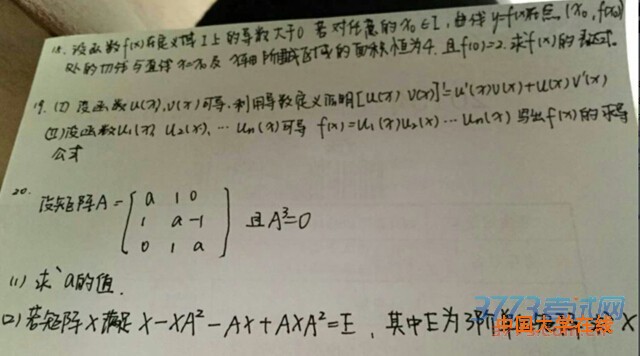 18. 设函数f(x)在定义域I上的导数大于0 若对任意的x₀∈I,曲线y=f(x)在点(x₀, f(x₀))
处的切线与直线x=x₀及x轴所围成区域的面积恒为4.且f(0)=2.求f(x)的表达式.
19. (I) 设函数u(x), v(x)可导.利用导数定义证明[u(x) v(x)]'=u'(x)v(x)+u(x)v'(x)
(II)设函数u₁(x) u₂(x), … uₙ(x)可导 f(x)=u₁(x)u₂(x)…uₙ(x) 写出f(x)的求导
公式
20.
设矩阵A= a 1 0 且A³=0
1 a -1
0 1 a
(1) 求a的值.
(2) 若矩阵X满足 X-XA²-AX+AXA²=E, 其中E为3阶 X
3773考试网
中国大学在线